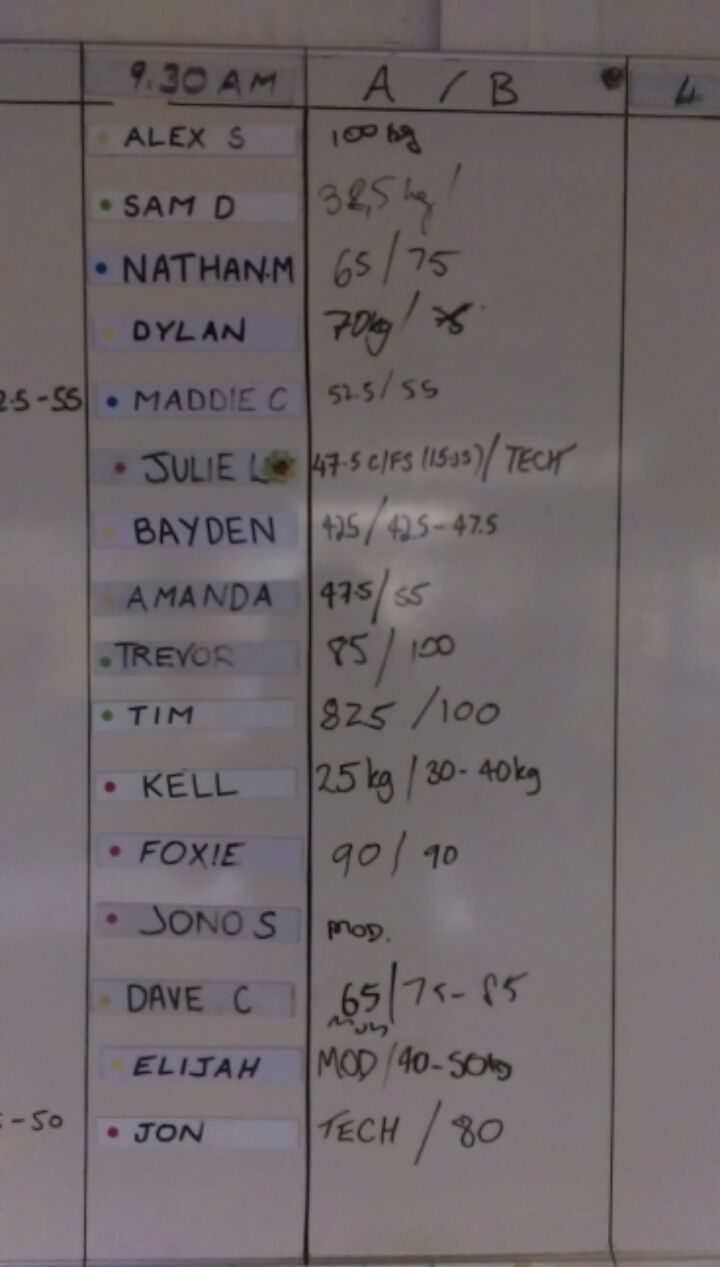 9.30 AM A / B L
ALEX S 100kg
SAM D 38,5 kg /
NATHAN.M 65 / 75
DYLAN 70kg /
2.5-55 MADDIE C 52.5 / 55
JULIE L 47.5 C/FS / TECH
BAYDEN 425 / 42.5 - 47.5
AMANDA 47.5 / 55
TREVOR 85 / 100
TIM 825 / 100
KELL 25kg / 30 - 40kg
FOXIE 90 / 90
JONO S MOD.
DAVE C 65 / 75 - 85
ELIJAH MOD / 40 - 50kg
-50 JON TECH / 80